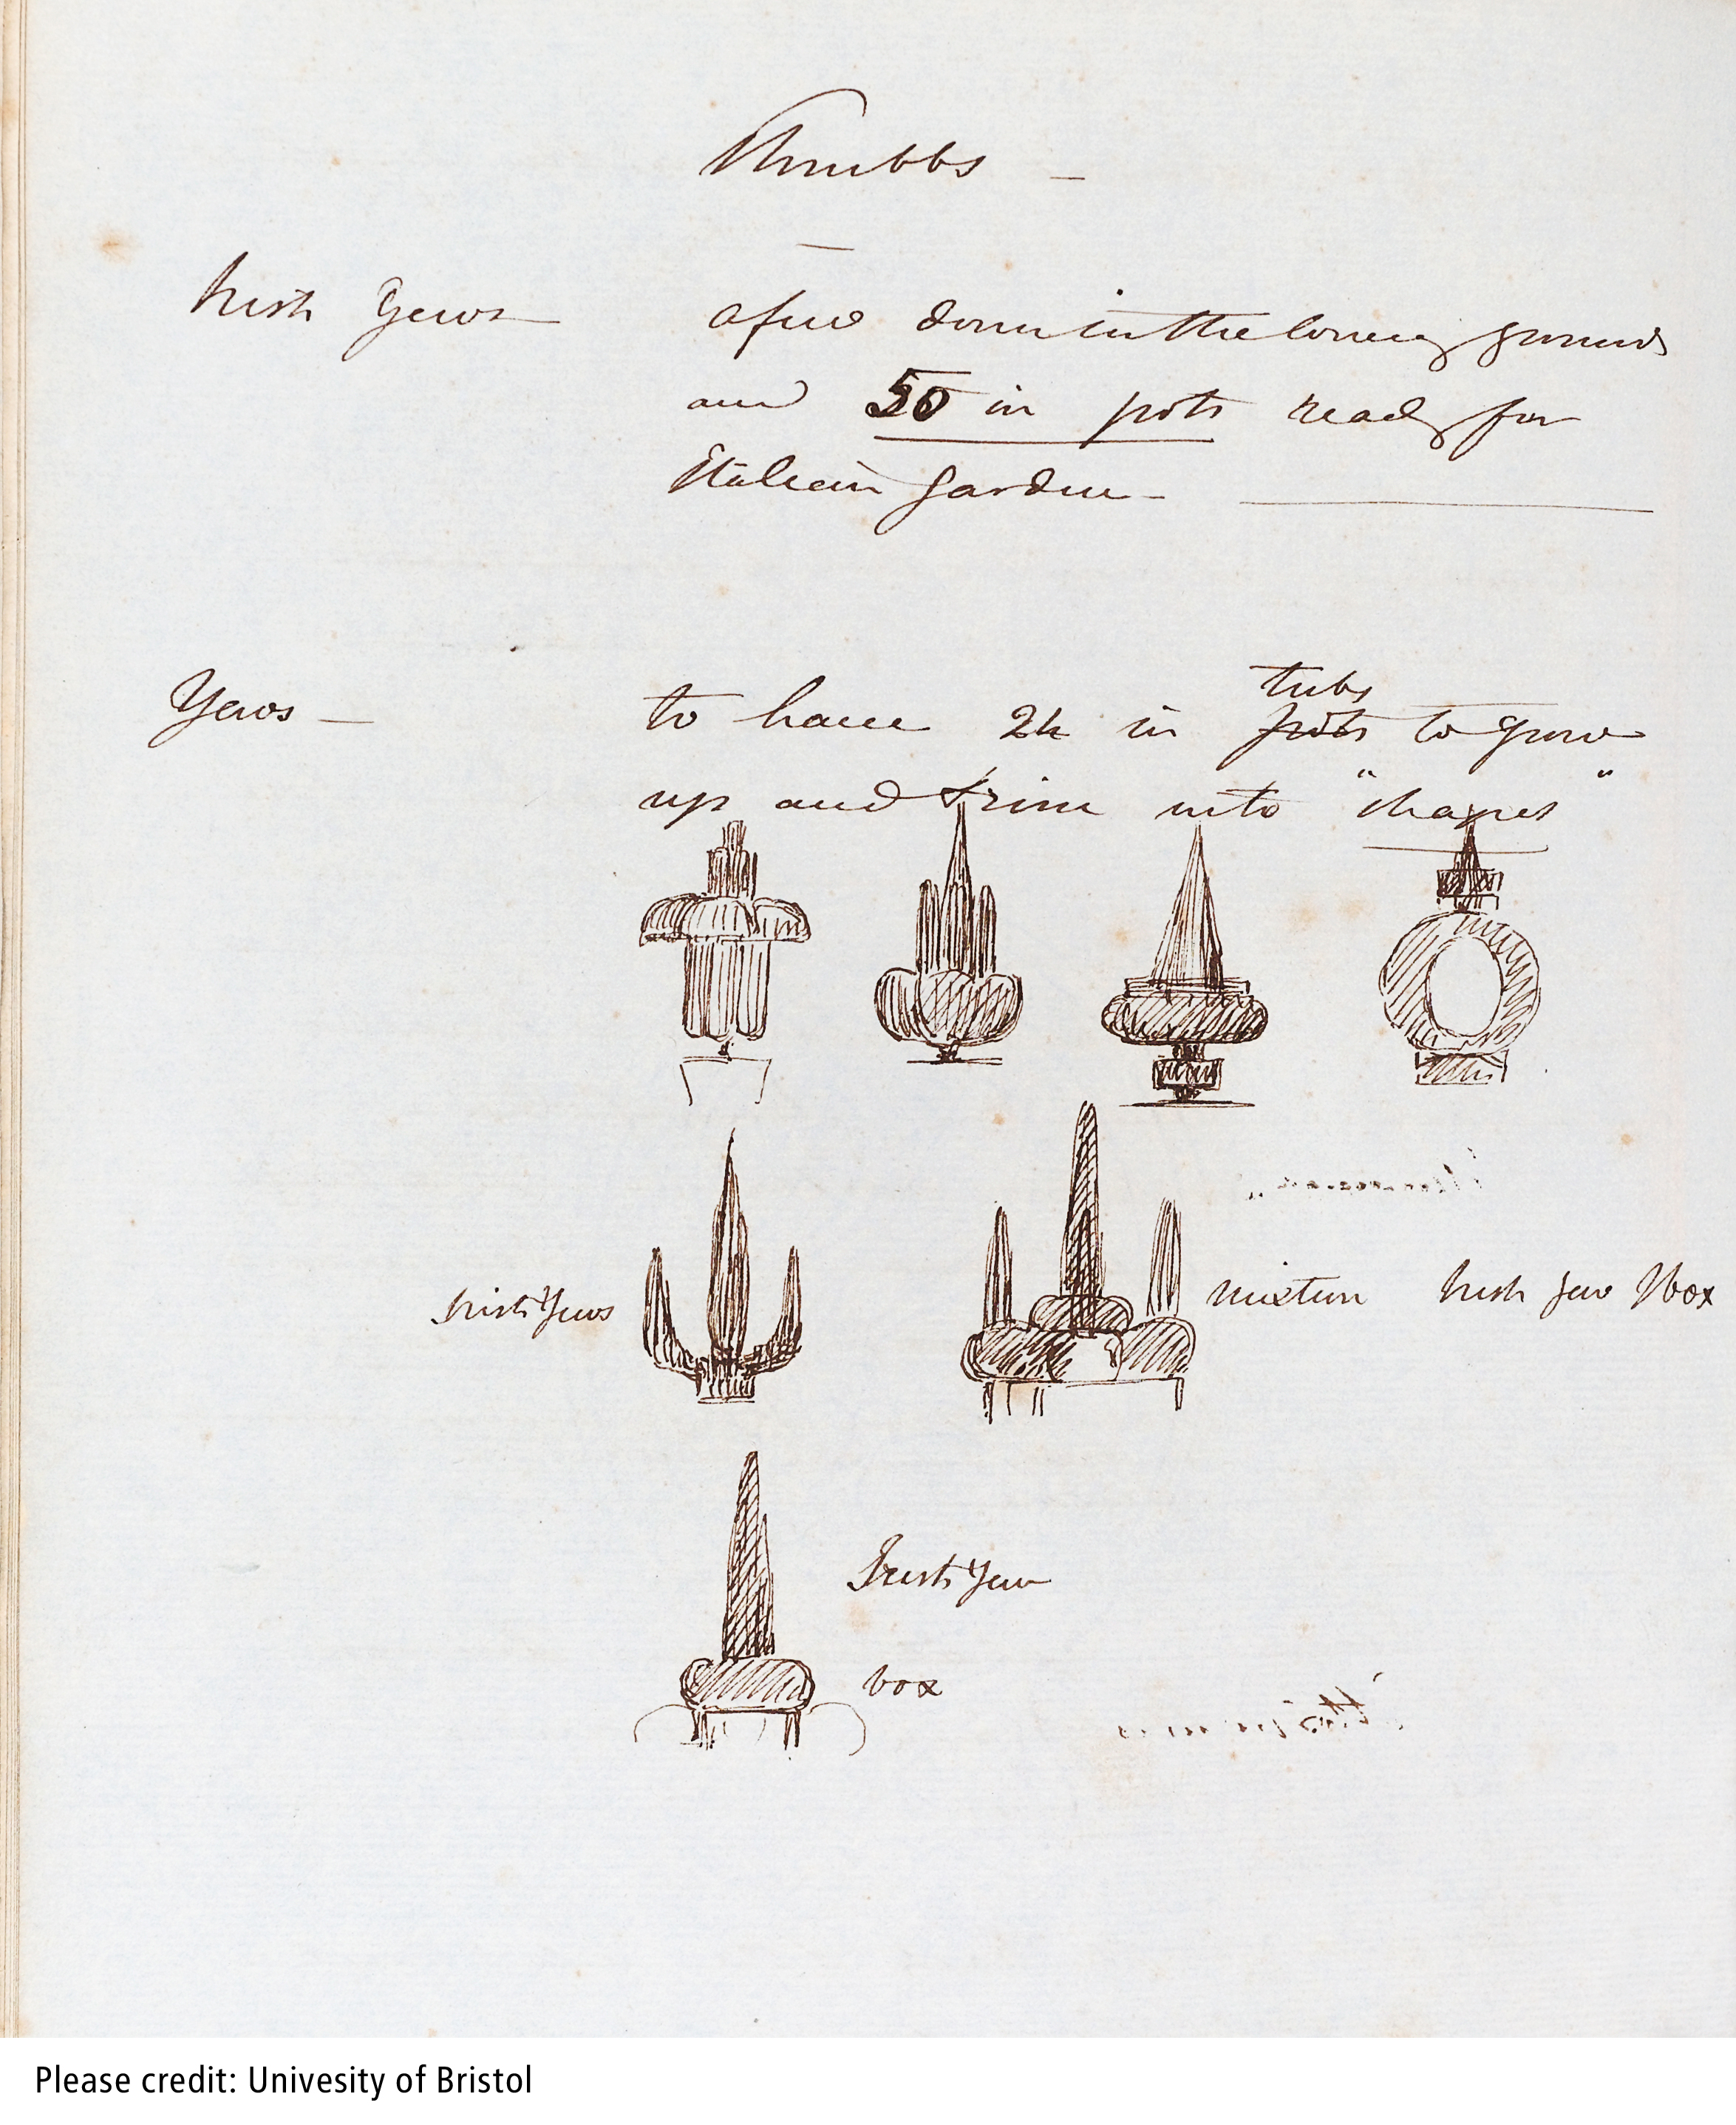 Shrubbs —
Irish Yews — a few down in the lower grounds
and 50 in pots ready for
Italian Garden —
Yews — to have 24 in pots tubs to grow
up and trim into "shapes"
Irish Yews
mixture Irish Yew & box
Irish Yew
box
Please credit: Univesity of Bristol